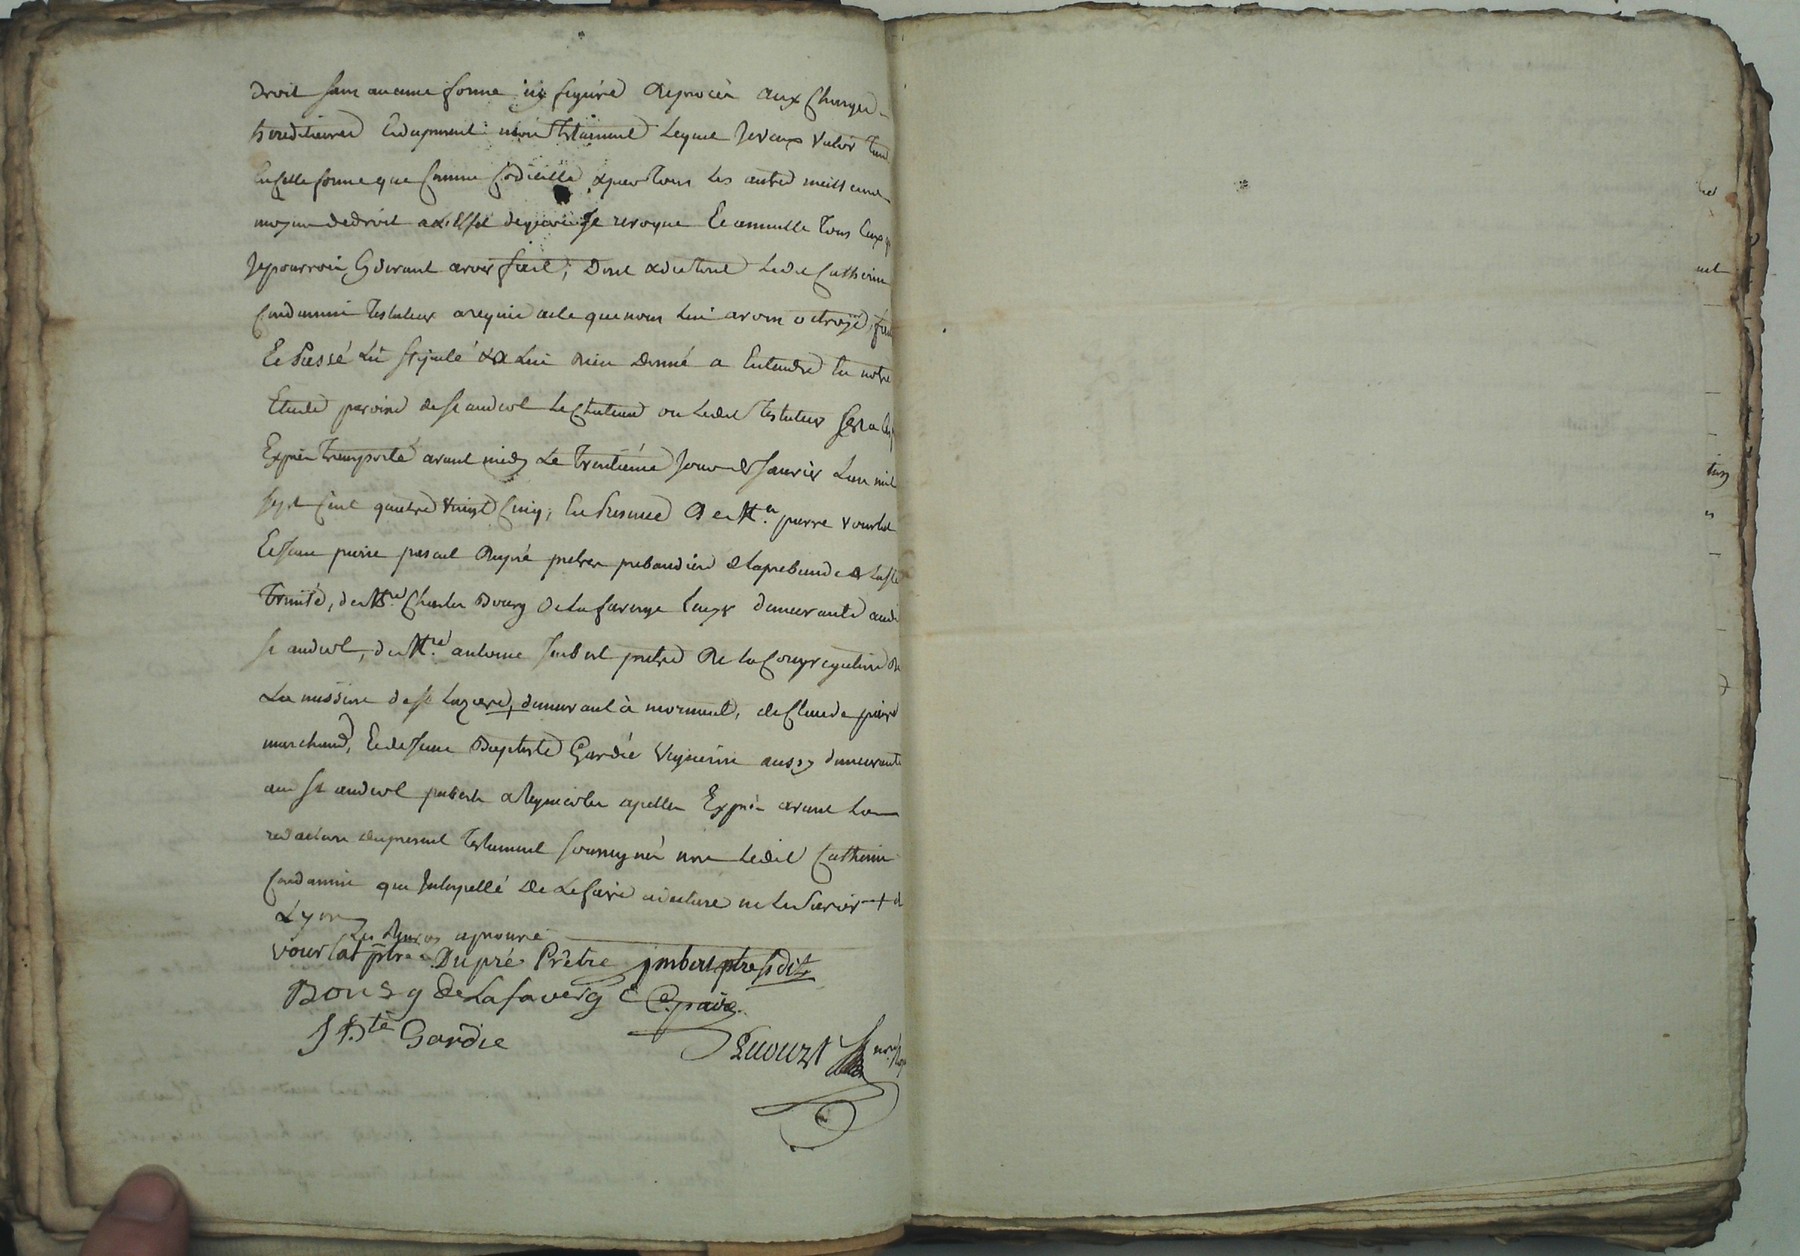 droit sans aucune forme ny figure de procès aux charges
hereditaires Cedupresent mon testament lequel Je veux valoir tant
En cette forme que Comme Codicille, & par tous les autres meilleurs
moyens de droit a Leffet de quoi Je revoque Et annulle tous Ceux
Je pourrois Cy devant avoir fait; Dont & du tout Ledit Catherin
Condamin testateur a requis acte que nous Lui avons octroyé, fait
Et Passé Lû stipulé & a Lui bien donné a Entendre En notre
Etude paroisse de st andeol Le Chateau ou Ledit testateur
Exprès transporté avant midy Le trentième Jour de Janvier Lan mil
sept Cent quatre vingt Cinq, En Presence de Mre pierre vourlat
Et Jean pierre pascal Dupré pretres prebandiers de la prebande de la ste
Trinité, de Mre Charles Bourg De Lafaverge Ceux demeurants audit
st andeol, de Mre antoine Imbert pretre De la Congregation de
La mission de st Lazare, demeurant à mornant, de Claude
marchand, Et de Jean Baptiste Gardie Vigneron aussy demeurants
aud st andeol apellés Exprès avant La
redaction du present Testament soussignés non Ledit Catherin
Condamin que Interpellé De Le faire a declaré ne Le Savoir + de
Lyon
aprouvé
vourlat ptre Dupré Prêtre imbert ptre
Bourg De Lafaverge C.
J Bte Gardie